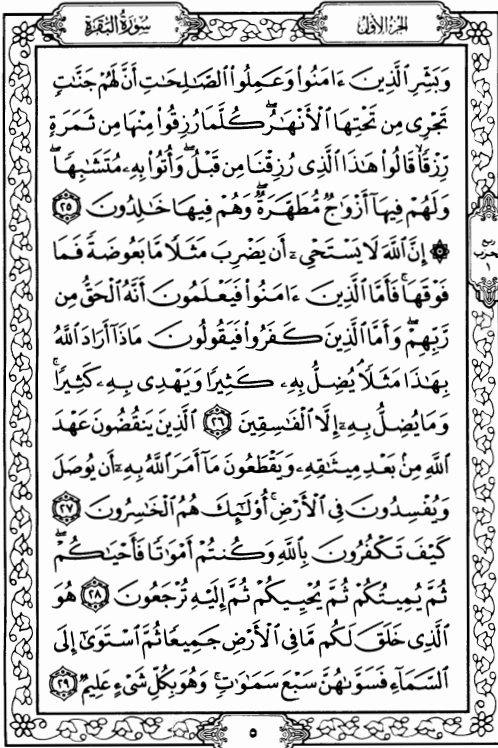 سورة البقرة
الجزء الأول
وَبَشِّرِ ٱلَّذِينَ ءَامَنُوا۟ وَعَمِلُوا۟ ٱلصَّٰلِحَٰتِ أَنَّ لَهُمْ جَنَّٰتٍ
تَجْرِى مِن تَحْتِهَا ٱلْأَنْهَٰرُ ۖ كُلَّمَا رُزِقُوا۟ مِنْهَا مِن ثَمَرَةٍ
رِّزْقًا ۙ قَالُوا۟ هَٰذَا ٱلَّذِى رُزِقْنَا مِن قَبْلُ ۖ وَأُتُوا۟ بِهِۦ مُتَشَٰبِهًا ۖ
وَلَهُمْ فِيهَآ أَزْوَٰجٌ مُّطَهَّرَةٌ ۖ وَهُمْ فِيهَا خَٰلِدُونَ ٢٥
۞ إِنَّ ٱللَّهَ لَا يَسْتَحْىِۦٓ أَن يَضْرِبَ مَثَلًا مَّا بَعُوضَةً فَمَا
فَوْقَهَا ۚ فَأَمَّا ٱلَّذِينَ ءَامَنُوا۟ فَيَعْلَمُونَ أَنَّهُ ٱلْحَقُّ مِن
رَّبِّهِمْ ۖ وَأَمَّا ٱلَّذِينَ كَفَرُوا۟ فَيَقُولُونَ مَاذَآ أَرَادَ ٱللَّهُ
بِهَٰذَا مَثَلًا ۘ يُضِلُّ بِهِۦ كَثِيرًا وَيَهْدِى بِهِۦ كَثِيرًا ۚ
وَمَا يُضِلُّ بِهِۦٓ إِلَّا ٱلْفَٰسِقِينَ ٢٦ ٱلَّذِينَ يَنقُضُونَ عَهْدَ
ٱللَّهِ مِنۢ بَعْدِ مِيثَٰقِهِۦ وَيَقْطَعُونَ مَآ أَمَرَ ٱللَّهُ بِهِۦٓ أَن يُوصَلَ
وَيُفْسِدُونَ فِى ٱلْأَرْضِ ۚ أُو۟لَٰٓئِكَ هُمُ ٱلْخَٰسِرُونَ ٢٧
كَيْفَ تَكْفُرُونَ بِٱللَّهِ وَكُنتُمْ أَمْوَٰتًا فَأَحْيَٰكُمْ ۖ
ثُمَّ يُمِيتُكُمْ ثُمَّ يُحْيِيكُمْ ثُمَّ إِلَيْهِ تُرْجَعُونَ ٢٨ هُوَ
ٱلَّذِى خَلَقَ لَكُم مَّا فِى ٱلْأَرْضِ جَمِيعًا ثُمَّ ٱسْتَوَىٰٓ إِلَى
ٱلسَّمَآءِ فَسَوَّىٰهُنَّ سَبْعَ سَمَٰوَٰتٍ ۚ وَهُوَ بِكُلِّ شَىْءٍ عَلِيمٌ ٢٩
ربع
الحزب
١
٥